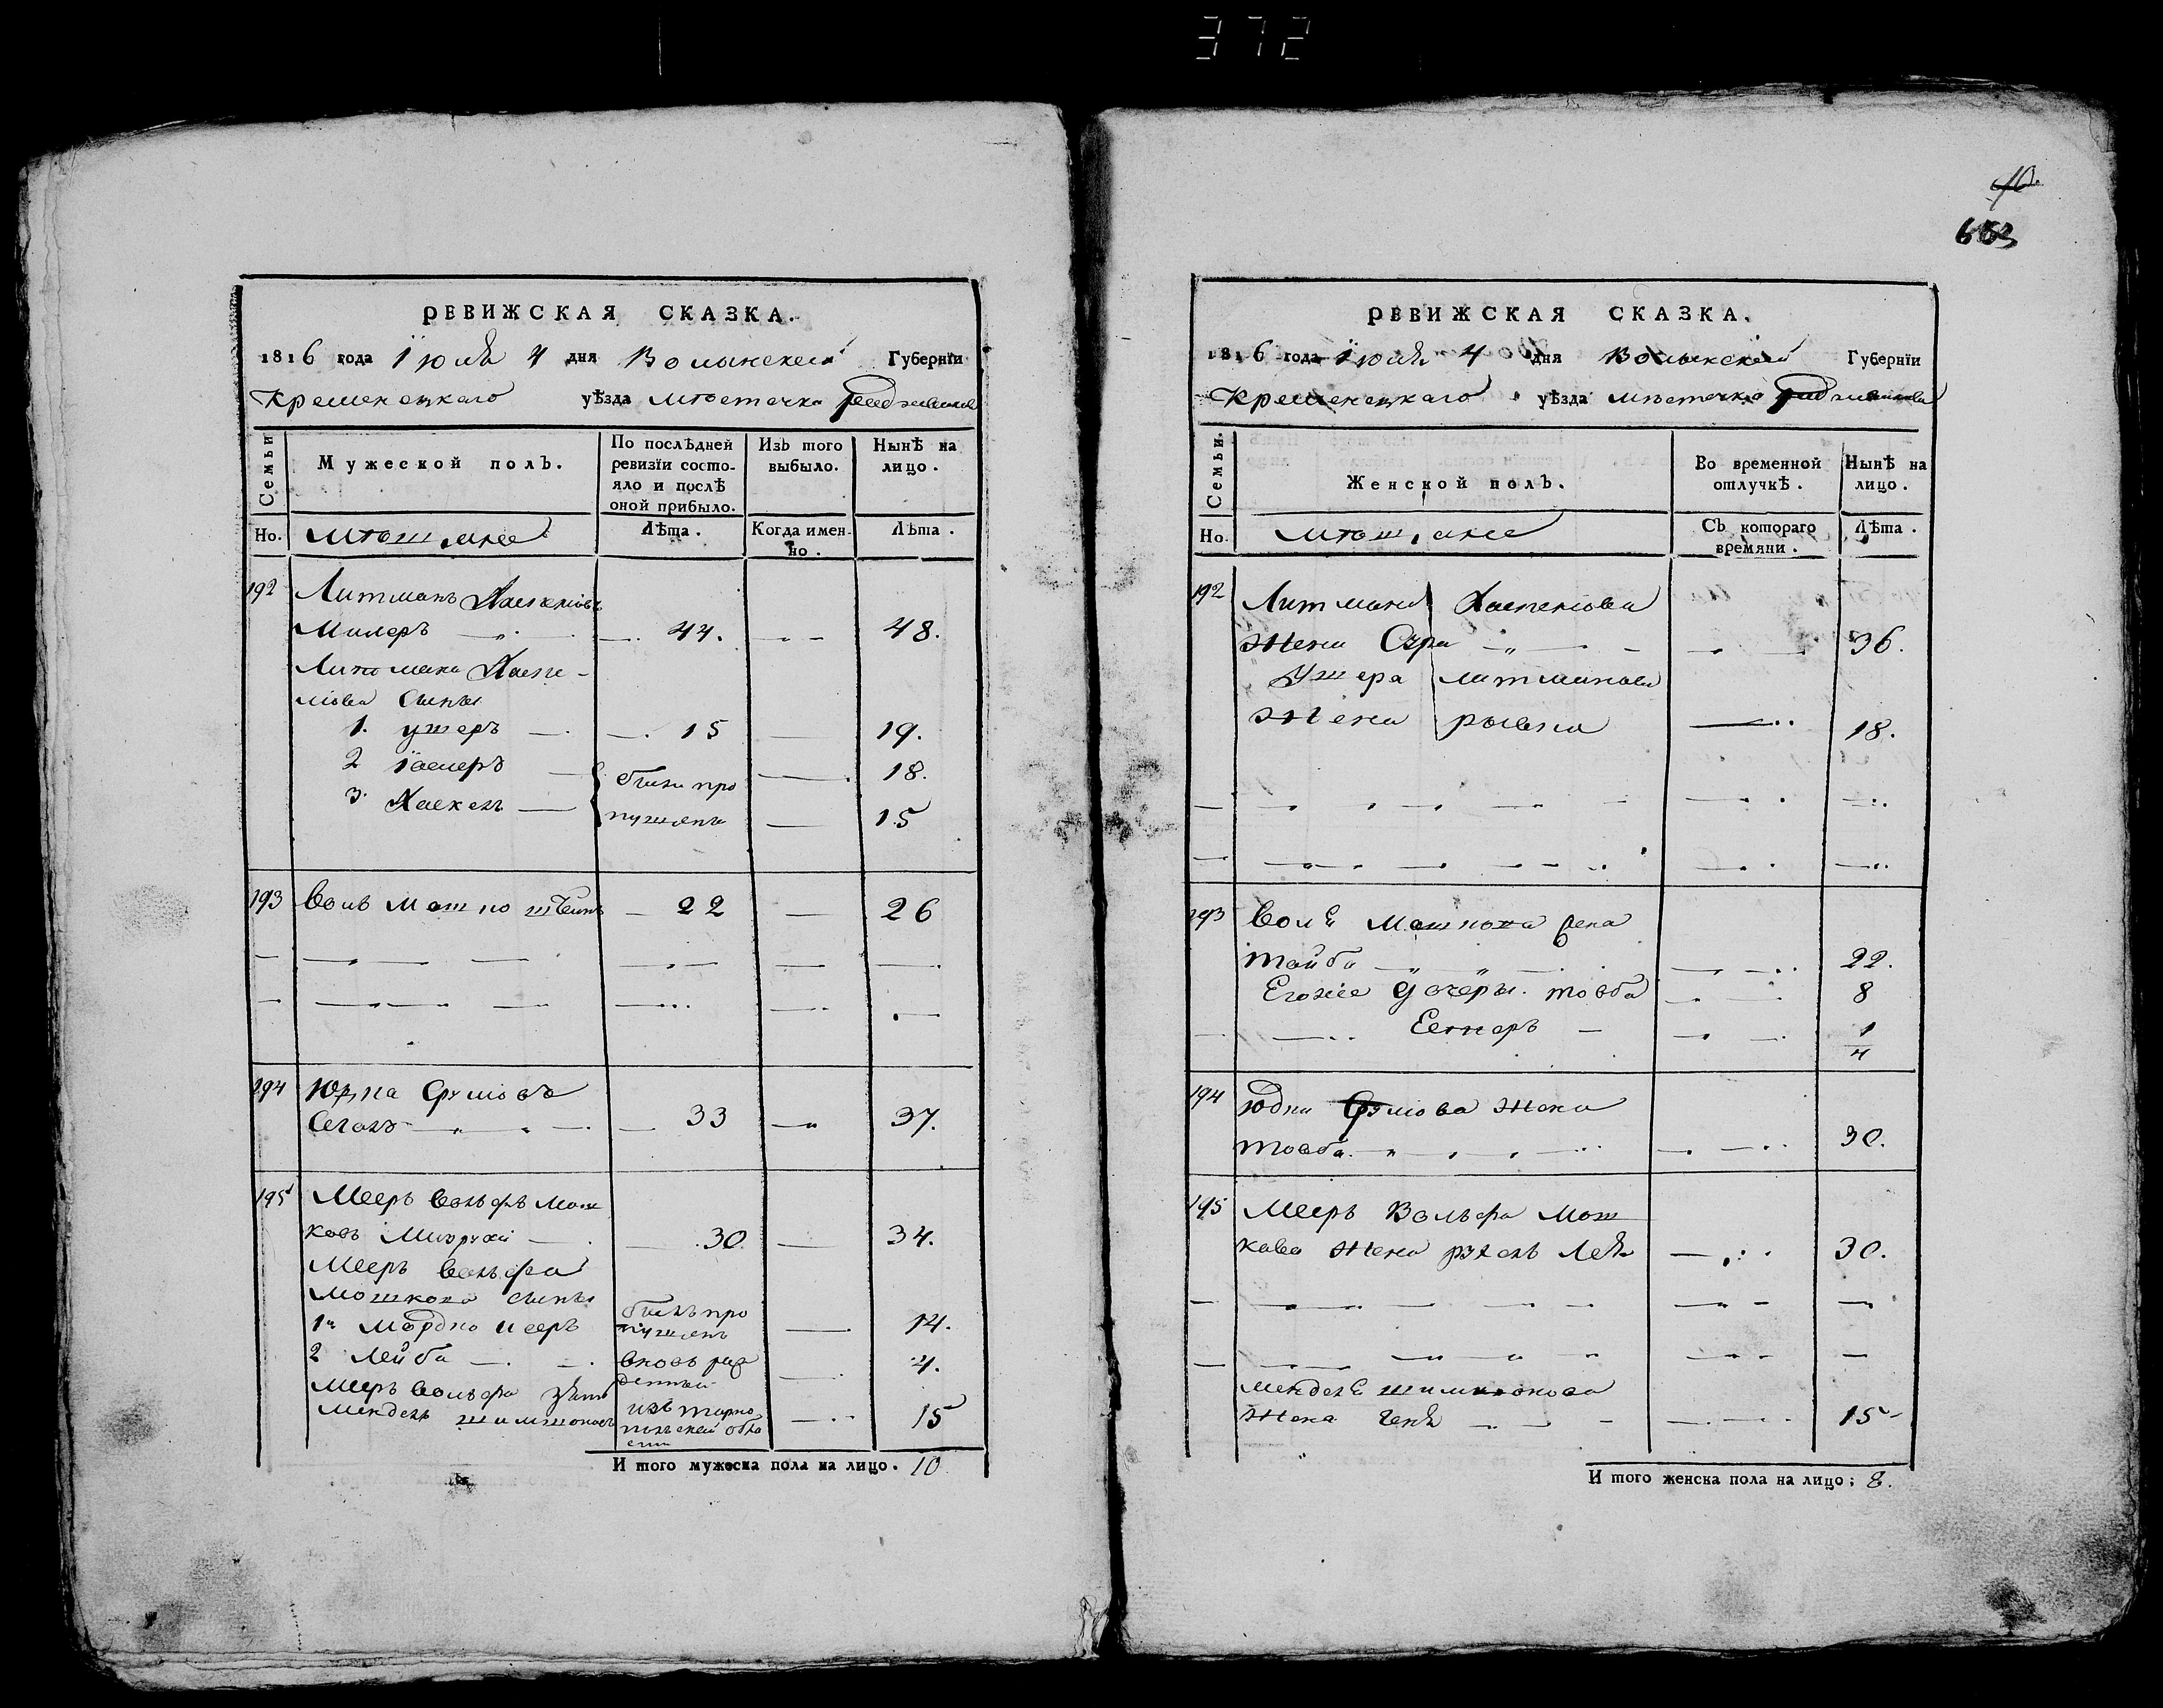 372
РЕВИЖСКАЯ СКАЗКА.
1816 года Іюля 4 дня Волынской Губерніи
Кременецкаго уѣзда мѣстечка
Семьи
Мужеской полъ.
По послѣдней ревизіи состояло и послѣ оной прибыло.
Изъ того выбыло.
Нынѣ на лицо.
Но.
Мѣщане
Лѣта.
Когда именно.
Лѣта.
192 Литманъ
Милеръ — 44. — 48.
Литмана
сыны
1. ушеръ — 15 — 19.
2 — 18.
3. Хаскель — 15
пущенъ
193 Волъ Мошко — 22 — 26
194 Юдка Сруловъ
— 33 — 37.
195 Мееръ Вольфъ Мош
ковъ — 30 — 34.
Мееръ Вольфа
Мошкова сыны
1й Мордко Мееръ пущенъ — 14.
2 Лейба — вновь рожденный — 4.
Мееръ Вольфа зять
Мендель Шимшоновъ изъ Тарнопольской области — 15
И того мужеска пола на лицо. 10
653
РЕВИЖСКАЯ СКАЗКА.
1816 года Іюля 4 дня Волынской Губерніи
Кременецкаго уѣзда мѣстечка
Семьи.
Женской полъ.
Во временной отлучкѣ.
Нынѣ на лицо.
Но.
Мѣщане
Съ котораго времяни.
Лѣта.
192 Литмана
жена Сура — 36.
Ушера Литманова
жена рывка — 18.
193 Волѣ Мошкова
тайба — 22.
Егожіе дочеры. товба — 8
Естеръ — 1/4
194 Юдки Срулова жена
товба — 30.
195 Мееръ Вольфа Мош
кова жена рухель Лея — 30.
Менделя Шимшонова
жена Геня — 15
И того женска пола на лицо; 8.